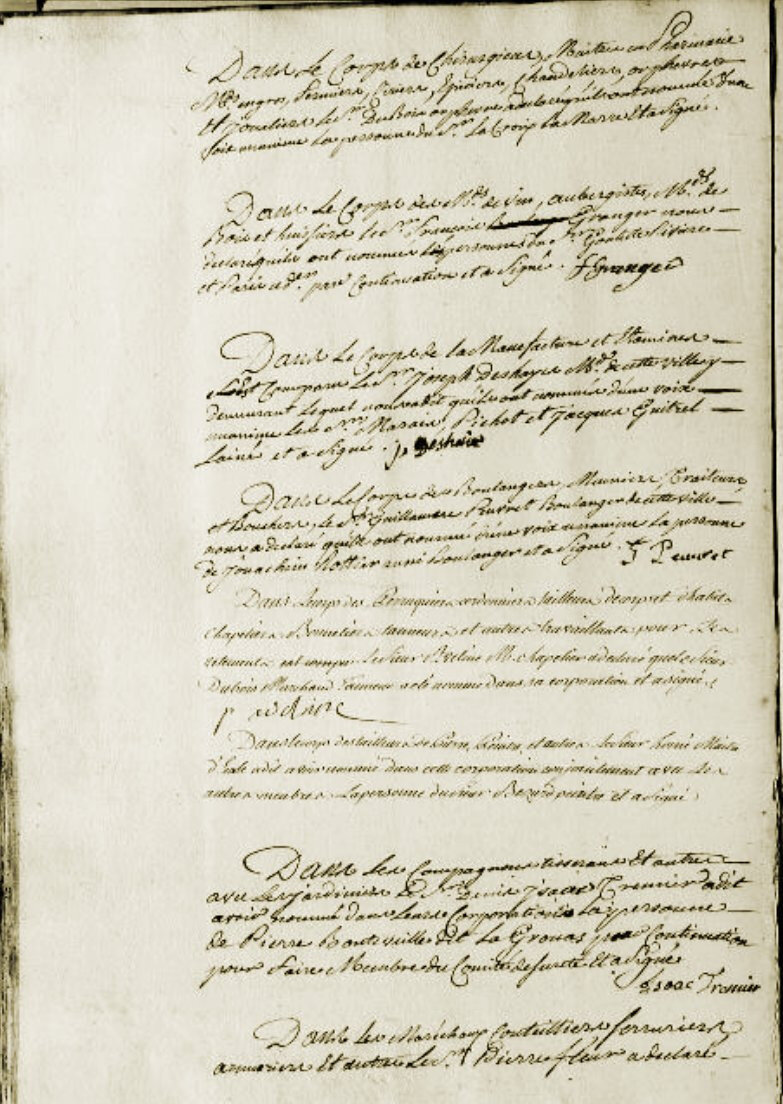 Dans le Corps de Chirurgiens, Maitres en Pharmacie
Mds en gros, Ferniers, Ciriers, Epiciers, Chandeliers, orphevres
Et Jouailiers le Sr. DuBois orphevre a declaré qu'ils ont nommé d'une
voix unanime la personne du Sr. la Croix la Marre Et a Signé.
Dans Le Corps des Mds. de vin, aubergistes, Mds. de
Bois et huissiers le Sr. François Granger nous
declare qu'ils ont nommé les personnes de Srs.
et Paris par Continuation et a Signé. f Granger
Dans Le Corps de la Manufacture et Etamines
Est Comparu le Sr. Joseph Deshayes Md. de cette ville y
demeurant Lequel nous a dit qu'ils ont nommés d'une voix
unanime les Srs. Marais, Pichot et Jacques Guitrel
Lainé et a Signé. J Deshaie
Dans Le Corps des Boulangers, Meuniers, Traiteurs
et Bouchers, le Sr. Guillaume Peuvret Boulanger de cette ville
nous a declaré qu'ils ont nommé d'une voix unanime la personne
de Jouachim Rottier Boulanger et a Signé. J Peuvret
Dans le corps des Peruquiers cordonniers tailleurs de corps et d'habits
Chapeliers Bonnetiers tanneurs et autres travaillants pour les
vetements est comparu le Sieur Md. chapelier a declaré que le Sieur
Dubois Marchand Tanneur a été nommé dans sa corporation et a signé.
Dans le corps des tailleurs de Pierre, Peintres, et autres le Sieur Maitre
d'Ecole a dit avoir nommé dans cette corporation conjointement avec les
autres membres La personne du sieur peintre et a Signé
Dans Les Compagnons tisserans Et autres
avec Les jardiniers Le Sr. Denis Isaac Tremier a dit
avoir nommé dans Leurs Corporations La personne
de Pierre Bontiville dit La Grouas par Continuation
pour faire Membre du Comité de Sureté Et a Signé
Isaac Tremier
Dans Les Marechaux Couteilliers Serruriers
armuriers Et autres Le Sr. Pierre fleur a declaré